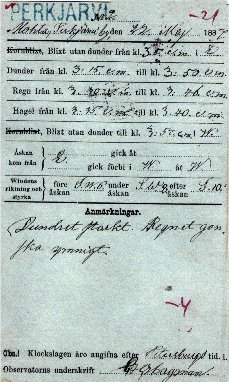 PERKJÄRVI
-21
Perkjärvi byden 22 Maj 1887
Kornblixt, Blixt utan dunder från kl. 3.5 e.m. i E
Dunder från kl. 3.15 e.m. till kl. 3.50 e.m.
Regn från kl. 3.20 e.m. till kl. 3.46 e.m.
Hagel från kl. 3.35 e.m. till kl. 3.40 e.m.
Kornblixt, Blixt utan dunder till kl. 3.55 e.m. i W
Åskan kom från E gick åt
gick förbi i W åt W
Windens riktning och styrka före åskan under efter åskan
Anmärkningar.
Dundret starkt. Regnet gan-
ska ymnigt.
-4
Obs.! Klockslagen äro angifna efter Petersburgs tid.
Observatorns underskrift